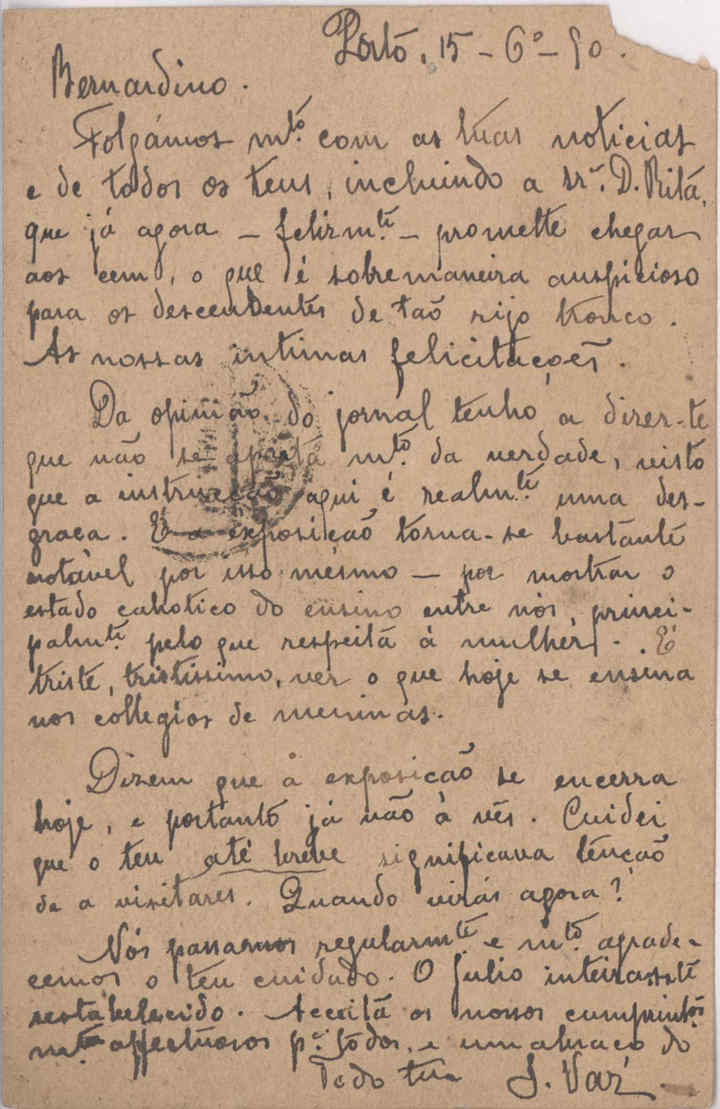 Porto, 15 - 6º - 90.
Bernardino.
Folgámos mtº. com as tuas noticias
e de todos os teus, incluindo a srª. D. Rita,
que já agora - felizmte. - promette chegar
aos cem, o que é sobremaneira auspicioso
para os descendentes de taõ rijo tronco.
As nossas intimas felicitações.
Da opinião do jornal tenho a dizer-te
que não se aparta mtº. da verdade, visto
que a instrucção aqui é realmte. uma des-
graça. E a exposição torna-se bastante
notável por isso mesmo - por mostrar o
estado cahotico do ensino entre nós, princi-
palmte. pelo que respeita á mulher -. É
triste, tristissimo, ver o que hoje se ensina
nos collegios de meninas.
Dizem que a exposição se encerra
hoje, e portanto já não a vês. Cuidei
que o teu até breve significava tenção
de a visitares. Quando virás agora?
Nós passamos regularmte. e mtº. agrade-
cemos o teu cuidado. O Julio inteiramte
restabelecido. Acceita os nossos cumprimtos
mto affectuosos pª. todos, e um abraço do
Todo teu J. Vaz